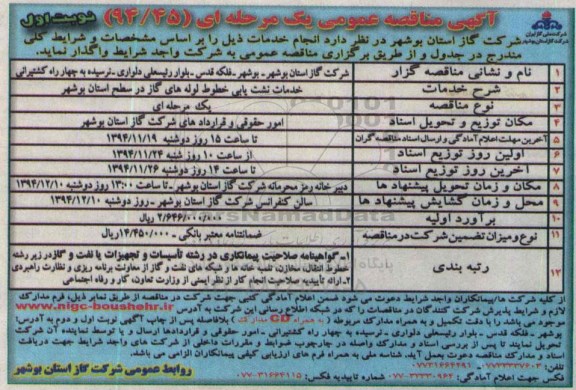 آگهی مناقصه عمومی یک مرحله ای (94/45)
نوبت اول
شرکت ملی گاز ایران
شرکت گاز استان بوشهر
شرکت گاز استان بوشهر در نظر دارد انجام خدمات ذیل را بر اساس مشخصات و شرایط کلی
مندرج در جدول و از طریق برگزاری مناقصه عمومی به شرکت واجد شرایط واگذار نماید.
۱ نام و نشانی مناقصه گزار شرکت گاز استان بوشهر - بوشهر - فلکه قدس - بلوار رئیسعلی دلواری - نرسیده به چهار راه کشتیرانی
۲ شرح خدمات خدمات نشت یابی خطوط لوله های گاز در سطح استان بوشهر
۳ نوع مناقصه یک مرحله ای
۴ مکان توزیع و تحویل اسناد امور حقوقی و قراردادهای شرکت گاز استان بوشهر
۵ آخرین مهلت اعلام آمادگی و ارسال اسناد مناقصه گران تا ساعت ۱۵ روز دوشنبه ۱۳۹۴/۱۱/۱۹
۶ اولین روز توزیع اسناد از ساعت ۱۰ روز شنبه ۱۳۹۴/۱۱/۲۴
۷ آخرین روز توزیع اسناد تا ساعت ۱۴ روز دوشنبه ۱۳۹۴/۱۱/۲۶
۸ مکان و زمان تحویل پیشنهاد ها دبیر خانه رمز محرمانه شرکت گاز استان بوشهر - تا ساعت ۱۳:۰۰ روز دوشنبه ۱۳۹۴/۱۲/۱۰
۹ محل و زمان گشایش پیشنهاد ها سالن کنفرانس شرکت گاز استان بوشهر - روز دوشنبه ۱۳۹۴/۱۲/۱۰
۱۰ برآورد اولیه ریال
۱۱ نوع و میزان تضمین شرکت در مناقصه ضمانتنامه معتبر بانکی -
۱۲ رتبه بندی ۱- گواهینامه صلاحیت پیمانکاری در رشته تأسیسات و تجهیزات یا نفت و گاز در زیر رشته
خطوط انتقال، مخازن، تلمبه خانه ها و شبکه های نفت و گاز از معاونت برنامه ریزی و نظارت راهبردی
۲. ارائه تأییدیه صلاحیت انجام کار از نظر ایمنی از وزارت تعاون، کار و رفاه اجتماعی
از کلیه شرکت ها/پیمانکاران واجد شرایط دعوت می شود ضمن اعلام آمادگی کتبی جهت شرکت در مناقصه از طریق نمابر ذیل، فرم مدارک
لازم و شرایط پذیرش شرکت کنندگان در مناقصات را که در شبکه اطلاع رسانی این شرکت به آدرس www.nigc-boushehr.ir
موجود می باشد را با دقت تکمیل و به همراه مدارک مربوطه به همراه CD مدارک بلافاصله پس از چاپ آگهی نوبت اول و دوم به آدرس:
بوشهر - فلکه قدس - بلوار رئیسعلی دلواری - نرسیده به چهار راه کشتیرانی - امور حقوقی و قراردادها ارسال و یا توسط نماینده آن شرکت
تحویل نمایند تا پس از بررسی اسناد و مدارک واصله در چارچوب ضوابط و مقررات داخلی از شرکت های واجد شرایط جهت دریافت
اسناد و مدارک مناقصه دعوت بعمل آید. شناسه ملی به همراه فرم های ارزیابی کیفی پیمانکاران الزامی می باشد.
تلفن:
فکس جهت اعلام آمادگی: شماره تاییدیه فکس:
روابط عمومی شرکت گاز استان بوشهر